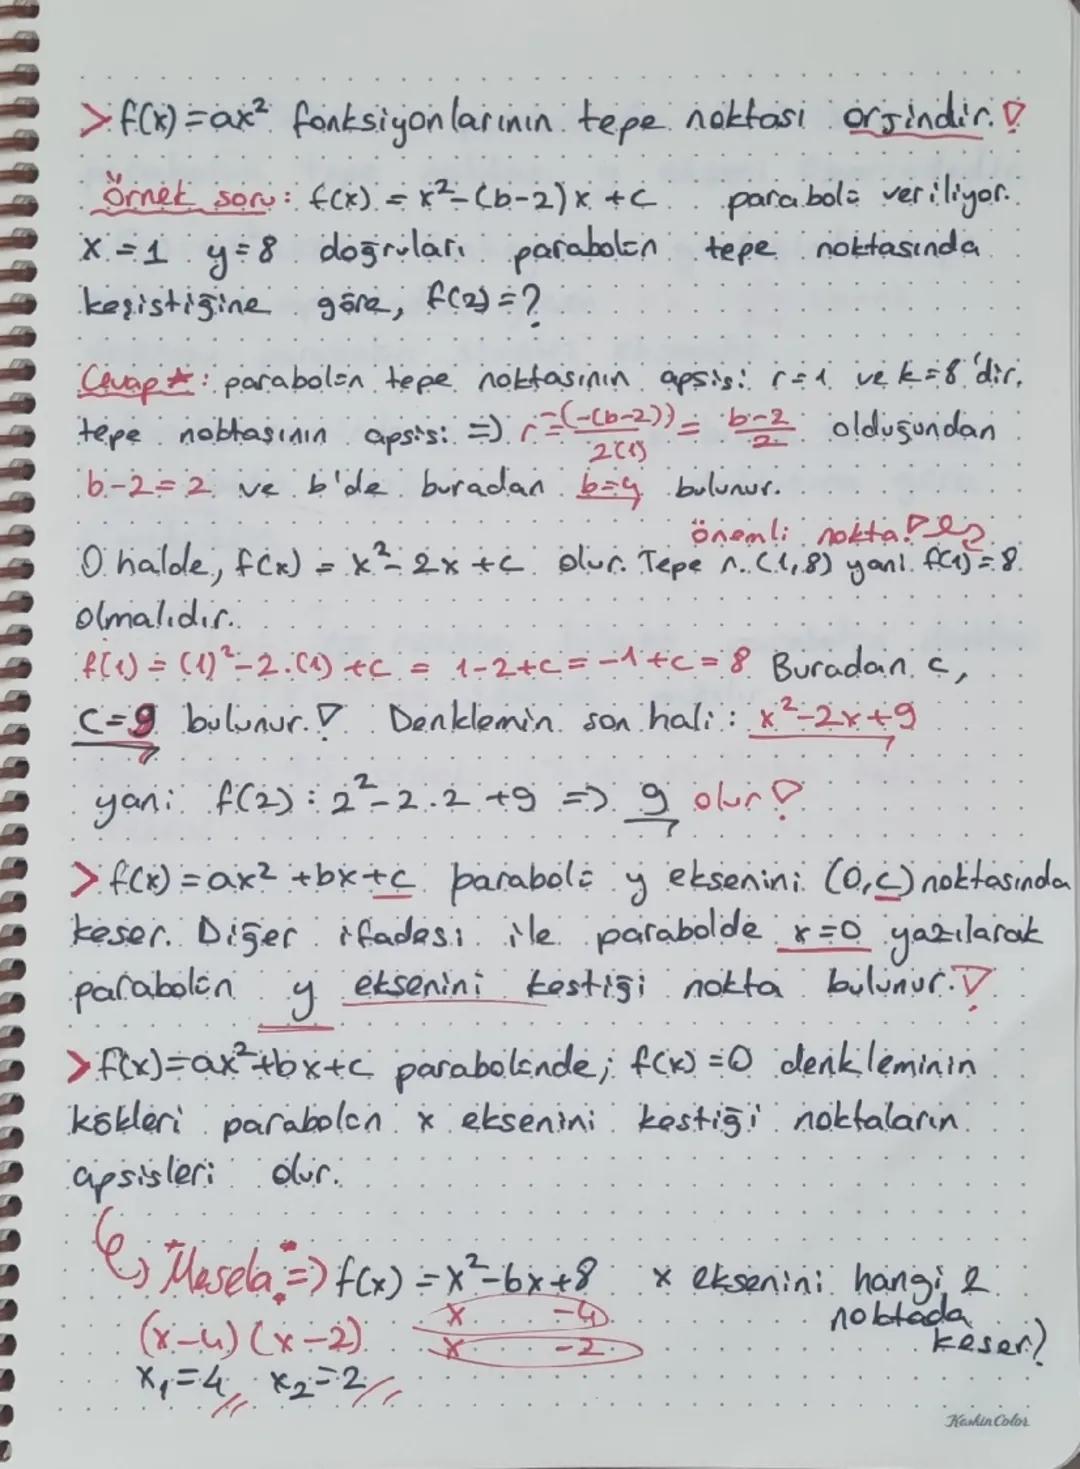 > f(x) = ax² fonksiyonlarının tepe noktası orjindir.
Örnek soru: f(x) = x² - (b-2)x + c parabolü veriliyor.
x = 1 y = 8 doğruları parabolün tepe noktasında
kesiştiğine göre, f(2) = ?
Cevap★: parabolün tepe noktasının apsisi r=1 ve k=8'dir.
tepe noktasının apsisi => r = -(-(b-2))/2(1) = b-2/2 olduğundan
b-2=2 ve b'de buradan b=4 bulunur.
önemli nokta!
O halde, f(x) = x² - 2x + c olur. Tepe n. (1,8) yani f(1) = 8
olmalıdır.
f(1) = (1)² - 2.(1) + c = 1-2+c = -1+c = 8 Buradan c,
c=9 bulunur. Denklemin son hali: x²-2x+9
yani f(2): 2²-2.2+9 => 9 olur
> f(x) = ax² + bx + c parabolü y eksenini (0,c) noktasında
keser. Diğer ifadesi ile parabolde x=0 yazılarak
parabolün y eksenini kestiği nokta bulunur.
> f(x)=ax²+bx+c parabolünde; f(x)=0 denkleminin
kökleri parabolün x eksenini kestiği noktaların
apsisleri olur.
Mesela => f(x) = x²-6x+8 x eksenini hangi 2
noktada
keser?
x -4
(x-4)(x-2)
x -2
x₁=4 x₂=2
KeskinColor